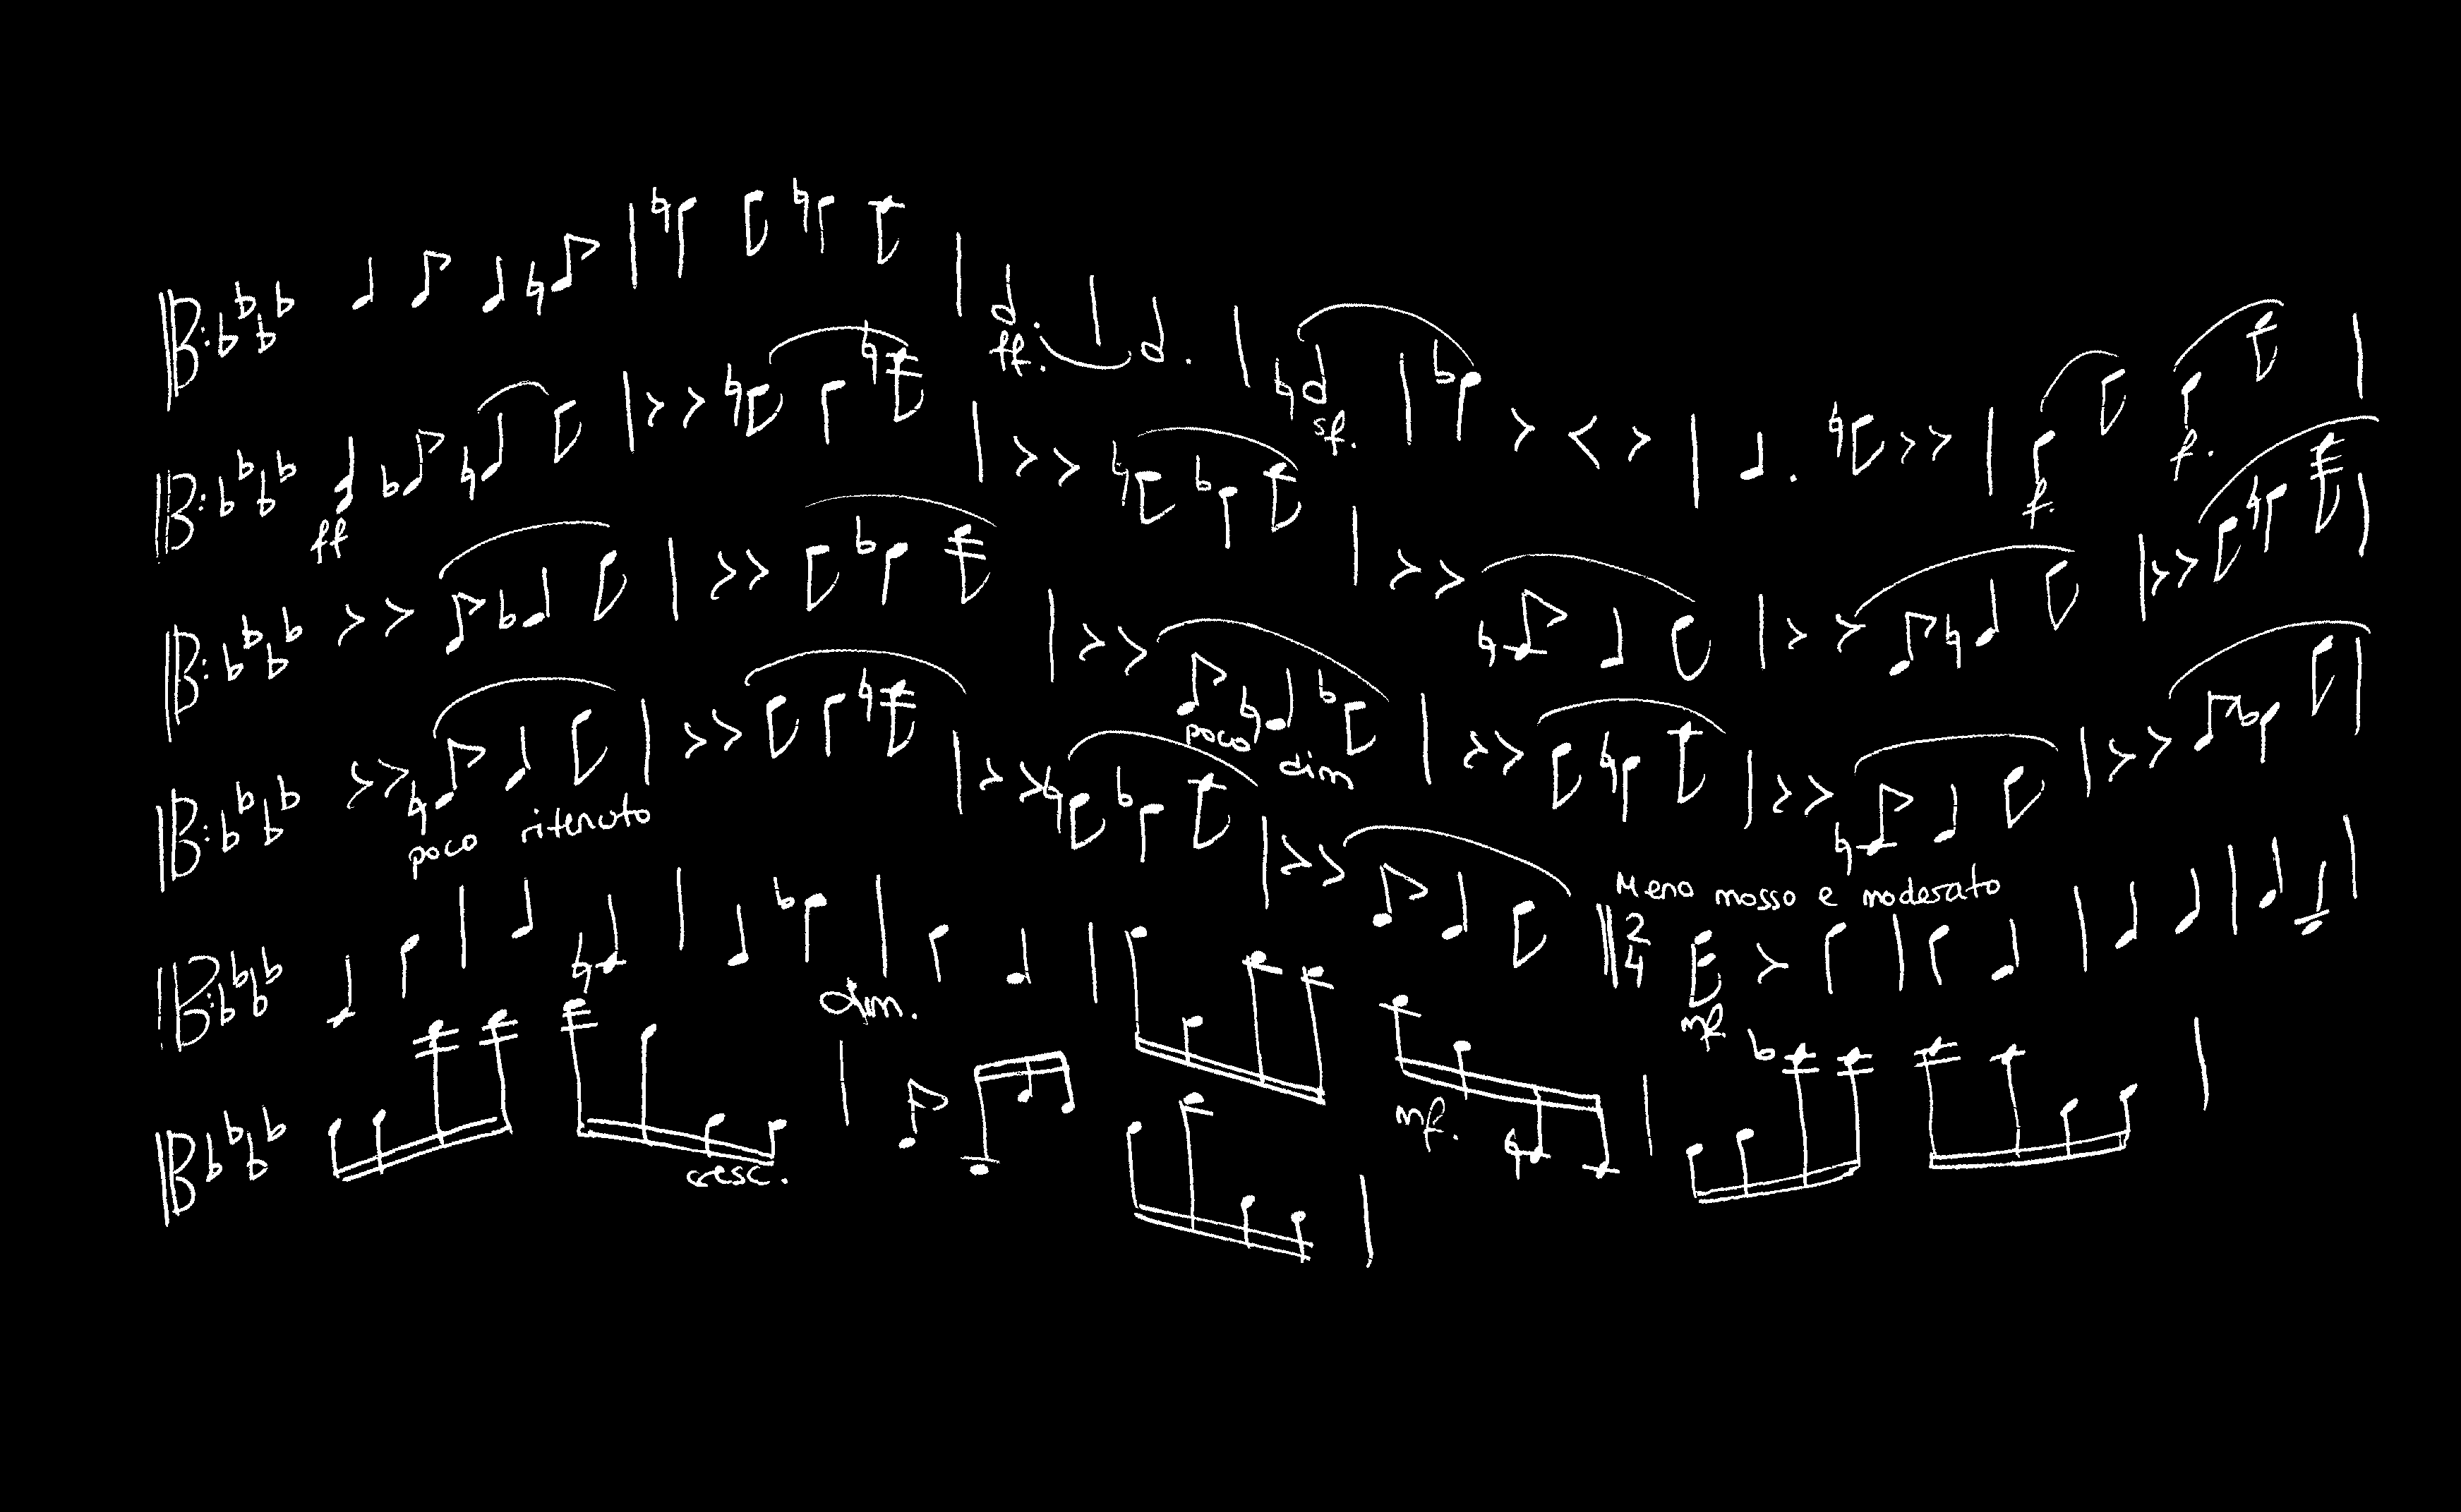 ff.
sf.
f. f.
ff
poco dim
poco ritenuto
Meno mosso e moderato
2
4
dim.
mf.
mf.
cresc.